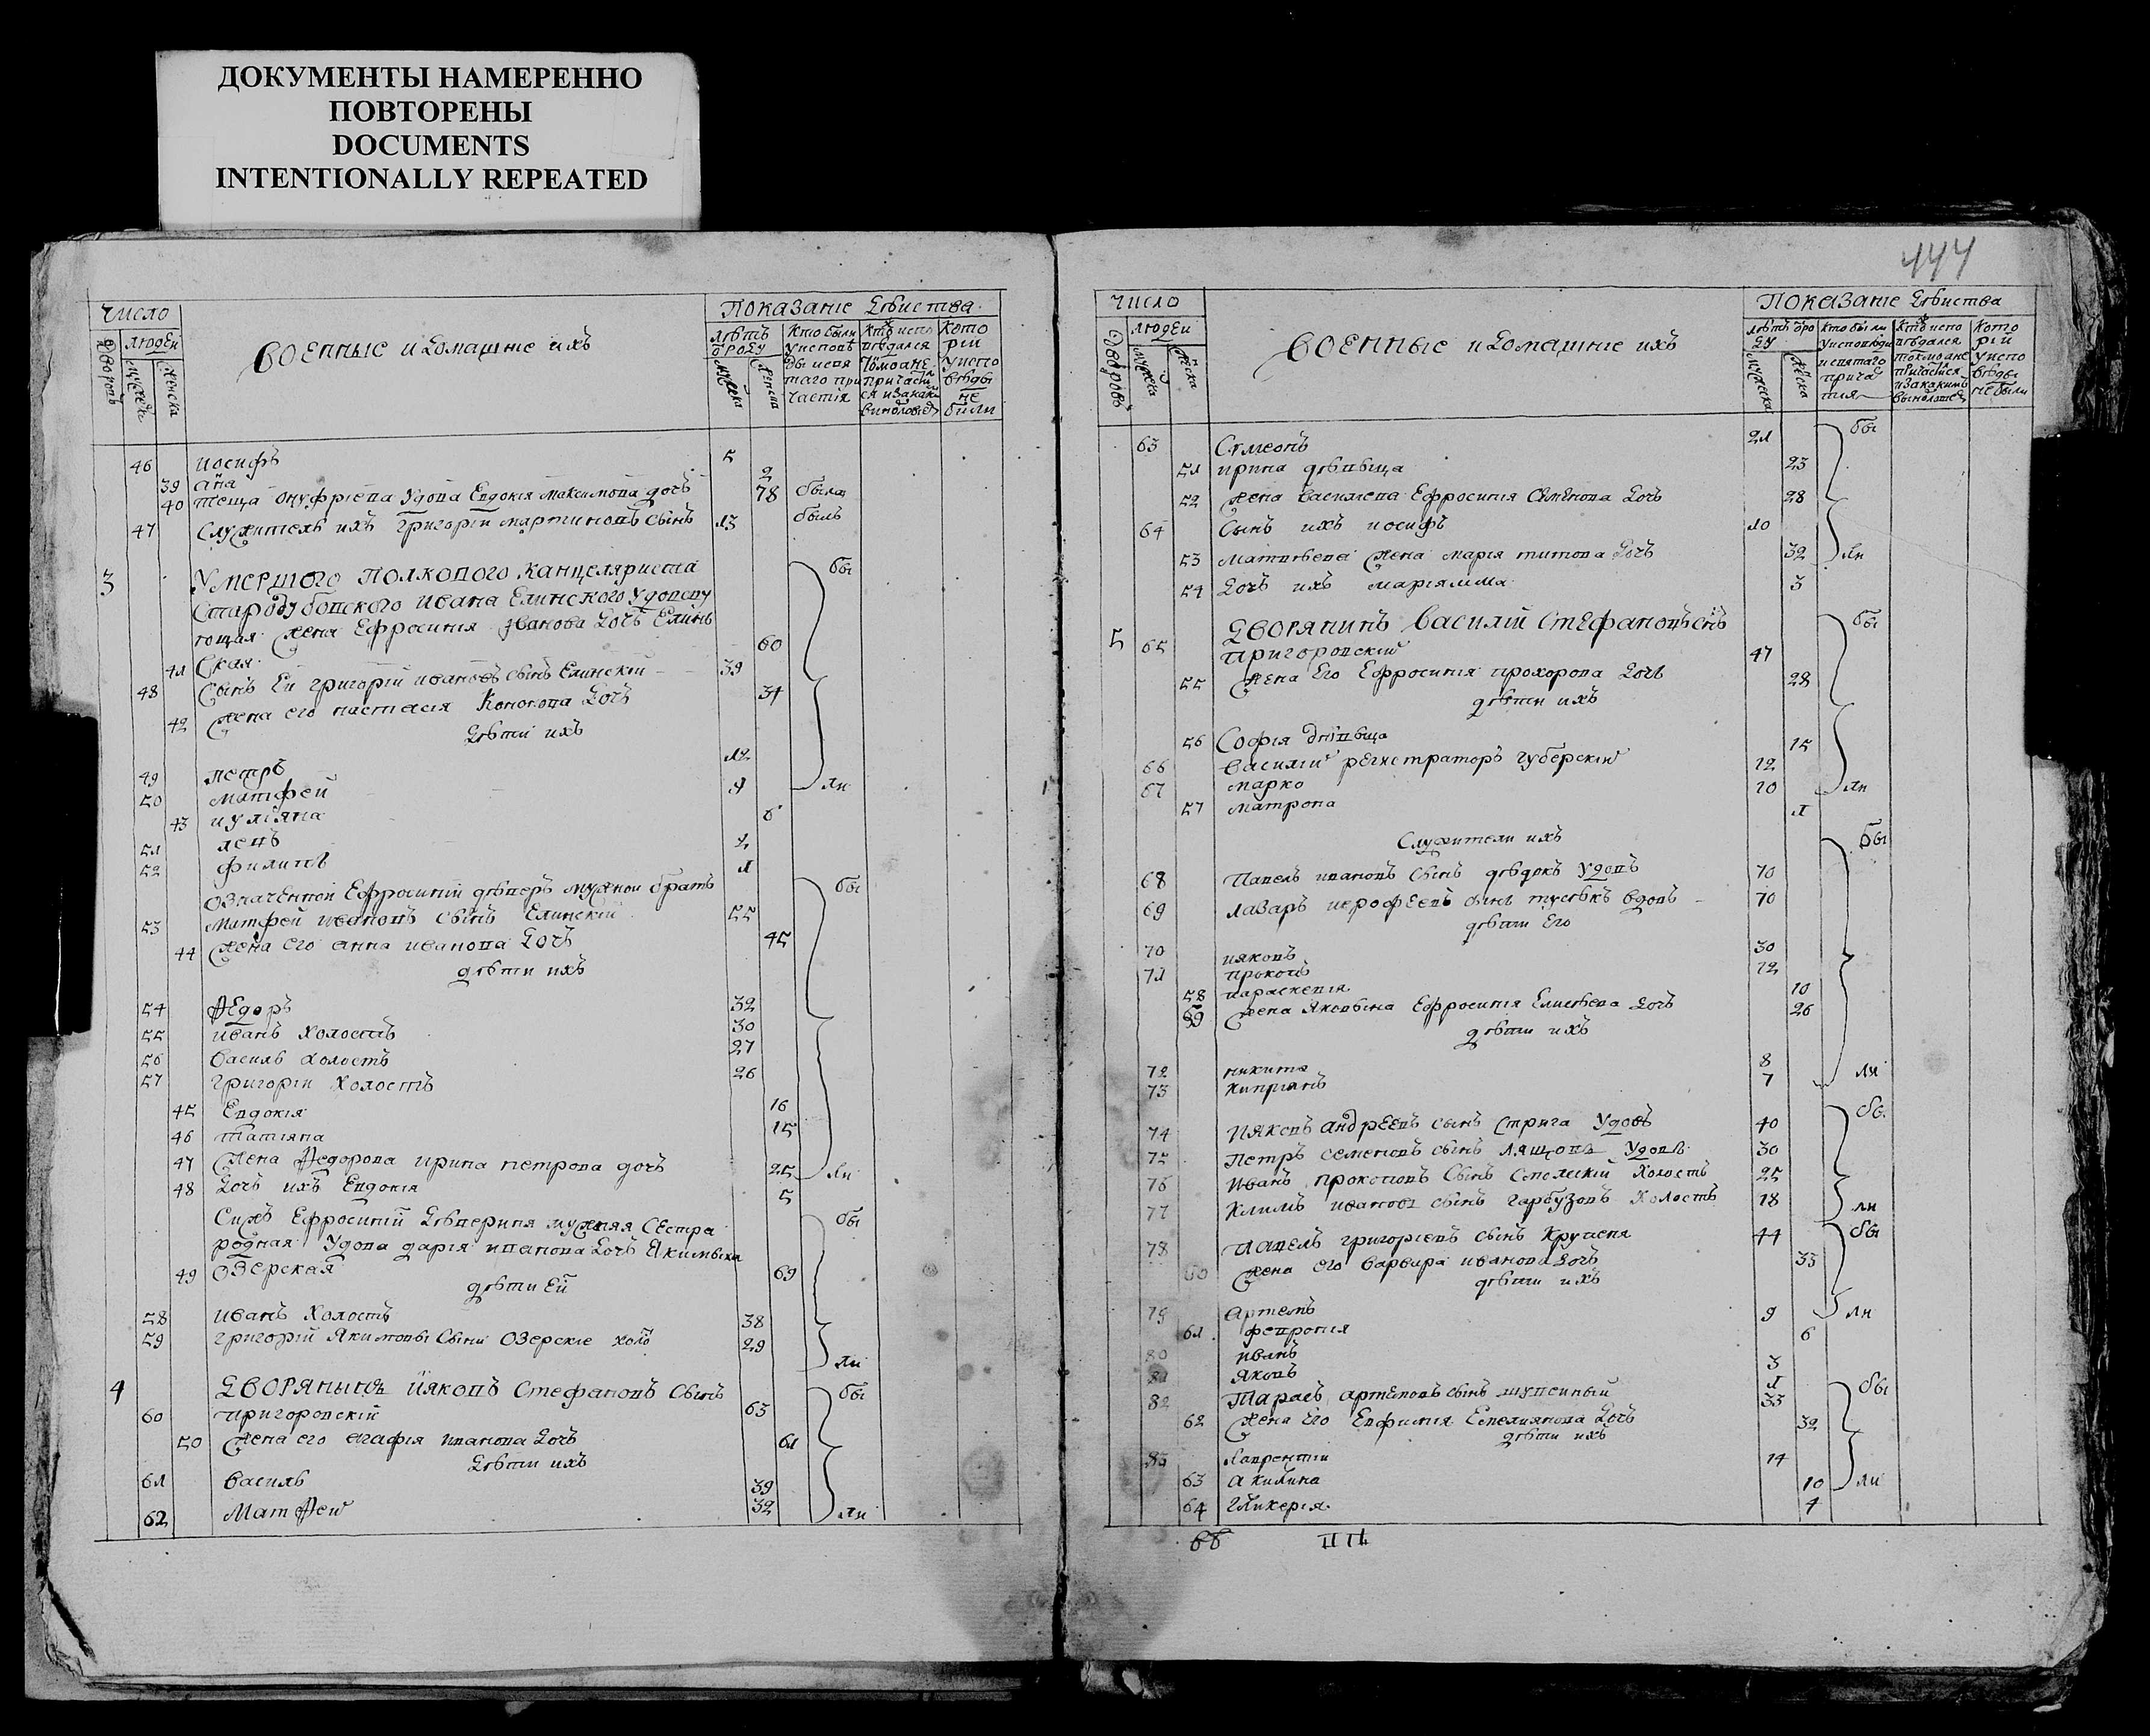 ДОКУМЕНТЫ НАМЕРЕННО
ПОВТОРЕНЫ
DOCUMENTS
INTENTIONALLY REPEATED
число
Дворовъ
людей
мужеска
женска
военные и домашние ихъ
Показание действа
летъ от роду
мужеска
женска
кто были у исповеди и святаго причастия
кто исповедался токмо а не причастился и за каким винословием
которий у исповеди не были
46 иосифъ 5
39 анна 2
40 теща Онуфриева удова Евдокия максимова дочь 78 была
47 Служитель ихъ григорий мартиновъ сынъ 13 былъ
3 Умершого полкового канцеляриста бы
Стародубовского ивана Елинского удовству
ющая жена Ефросиния иванова дочь Елинъ
41 ская 60
48 Сынъ Ей григорий ивановъ сынъ Елинский 39
42 жена его настасия Кононова дочь 34
дети ихъ
49 петръ 12
50 матфей 9 ли
43 иулияна 6
51 левъ 4
52 филипъ 1
означенной Ефросинии деверъ мужной братъ бы
53 Матфей ивановъ сынъ Елинский 55
44 жена его анна иванова дочь 45
дети ихъ
54 Федоръ 32
55 иванъ холостъ 30
56 василь холостъ 27
57 григорий холостъ 26
45 Евдокия 16
46 татияна 15
47 жена Федорова ирина петрова дочь 25 ли
48 дочь ихъ Евдокия 5
Сихъ Ефросиний деверина мужняя сестра бы
родная удова дария иванова дочь Якимвска
49 Озерская 69
дети Ей
58 иванъ холостъ 38
59 григорий Якимовы сыни Озерские холо 29 ли
4 Дворянинъ Ияковъ Стефановъ сынъ бы
60 пригоровский 63
50 жена его агафия иванова дочь 61
дети ихъ
61 василь 39
62 Матфей 32 ли
444
число
Дворовъ
людей
мужеска
женска
военные и домашние ихъ
Показание действа
летъ от роду
мужеска
женска
кто были у исповеди и святаго причастия
кто исповедался токмо а не причастился и за какимъ винословием
которий у исповеди не были
63 Симеонъ 21 бы
51 ирина девица 23
52 жена василиева Ефросиния Семенова дочь 28
64 Сынъ ихъ иосифъ 10
53 матвеева жена мария титова дочь 32 ли
54 дочь ихъ мариямма 3
5 Дворянинъ василий Стефановъ снъ бы
65 пригоровский 47
55 жена его Ефросиния прохорова дочь 28
дети ихъ
56 София девица 15
66 василий регистраторъ губерский 12
67 марко 10 ли
57 матрона 1
Служители ихъ бы
68 Павелъ ивановъ сынъ дедокъ удовъ 70
69 лазаръ иерофеевъ сынъ вдовъ 70
дети его
70 ияковъ 30
71 прокопъ 12
58 параскевия 10
59 жена Яковлева Ефросиния Елисеева дочь 26
дети ихъ
72 никита 8 ли
73 киприянъ 7
74 Ияковъ андреевъ сынъ Стрига удовъ 40 бы
75 Петръ семеновъ сынъ Лящовъ удовъ 30
76 иванъ прокоповъ сынъ холостъ 25
77 Климъ ивановъ сынъ гарбузовъ холостъ 18 ли
78 Павелъ григориевъ сынъ Крупеня 44 бы
60 жена его варвара иванова дочь 33
дети ихъ
79 артемъ 9 ли
61 феврония 6
80 иванъ 3
81 яковъ 1
82 Тарасъ артемовъ сынъ 33 бы
62 жена его Евфимия Емелиянова дочь 32
дети ихъ
83 лаврентий 14
63 акилина 10 ли
64 гликерия 4